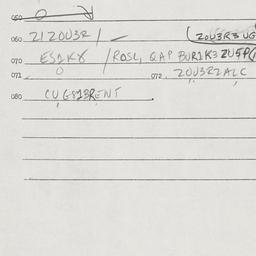 050
060 ZIZOU3R / (ZOU3R3UG
070 ES1K8 /ROSL, QAP BUR1K3 ZU5P(
071 072 ZOU3RZALC
080 CUGS13RENT